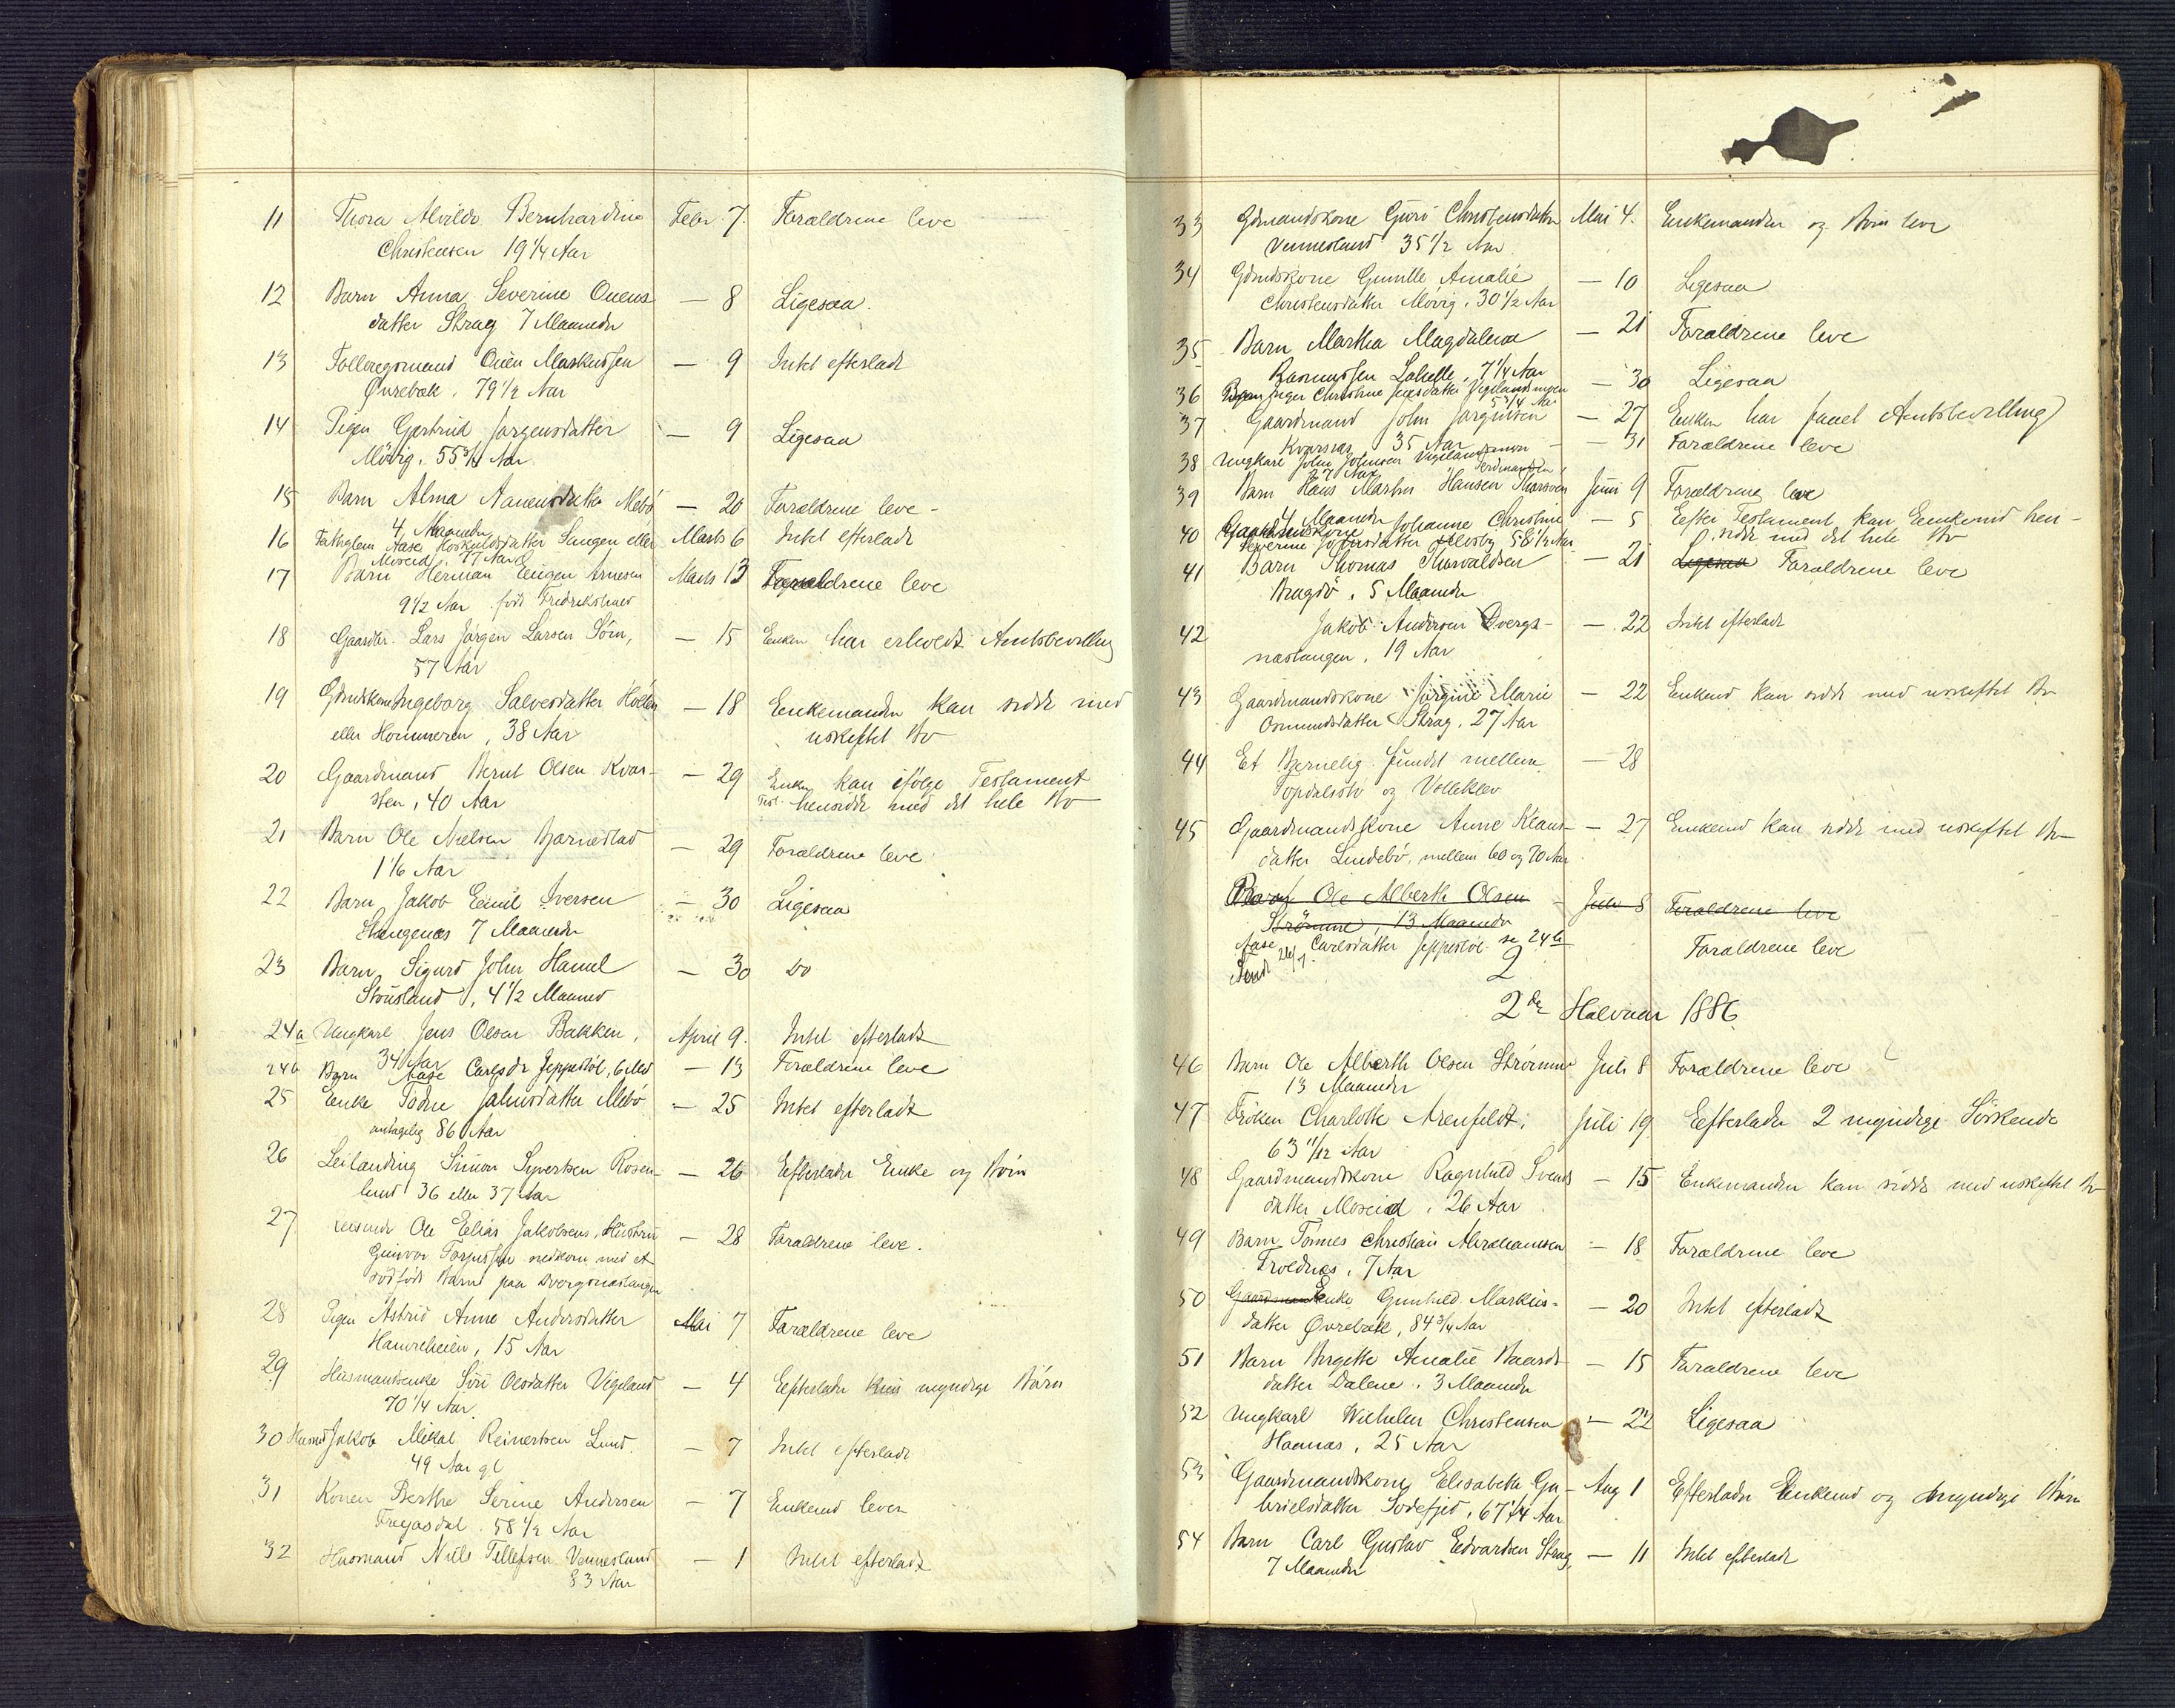 11 Thora Alvilde Bernhardine Febr. 7. Forældrene leve
Christensen 19 1/4 Aar
12 Barn Anna Severine Ouens — 8 Ligesaa.
datter Strag 7 Maaneder
13 Folleregsmand Ouen Markussen — 9 Intet efterladt
Øvrebæk, 79 1/2 Aar
14 Pigen Gjertrud Jørgensdatter — 9 Ligesaa
Møvig, 55 3/4 Aar
15 Barn Alma Aanensdatter Mebø — 20 Forældrene leve -
4 Maaneder
16 Fattiglem Aase Hoskuldsdatter Langen eller Marts 6 Intet efterladt
Moseid, 77 Aar
17 Barn Herman Eugen Arnesen Marts 13 Forældrene leve
9 1/2 Aar født Fredrikshald
18 Gaardbr. Lars Jørgen Larsen Søm, — 15 Enken har erholdt Amtsbevilling
57 Aar
19 Gmdskone Ingeborg Salvesdatter Hollen — 18 Enkemanden kan sidde med
eller Hommeren, 38 Aar uskiftet Bo
20 Gaardmand Bernt Olsen Kvar- — 29 Enken kan ifølge Testament
sten, 40 Aar hensidde med det hele Bo
21 Barn Ole Nielsen Bjørnestad — 29 Forældrene leve
1 1/6 Aar
22 Barn Jakob Emil Iversen — 30 Ligesaa
Stangenæs 7 Maaneder
23 Barn Sigurd John Hamel — 30 Do
Strusland, 4 1/2 Maaned
24a Ungkarl Jens Olsen Bakken, April 9. Intet efterladt
34 Aar
24b Barn Aase Carlsdr Jeppestøl, 6 Md — 13 Forældrene leve
25 Enke Todne Jahnsdatter Mebø — 25 Intet efterladt
antagelig 86 Aar
26 Leilænding Simon Syvertsen Rosen- — 26 Efterlader Enke og Børn
lund 36 eller 37 Aar
27 reisende Ole Elias Jakobsens, Hustru — 28 Forældrene leve.
Gunvor Torjussen nedkom med et
dødfødt Barn paa Dvergsnæstangen
28 Pigen Astrid Anne Andersdatter Mai 7 Forældrene leve
Hamreheien, 15 Aar
29 Husmandsenke Siri Olsdatter Vigeland — 4 Efterlader kun myndige Børn
70 1/4 Aar
30 Husmd Jakob Mikal Reinertsen Lund. — 7 Intet efterladt
49 Aar gl
31 Konen Berthe Serine Andersen — 7 Enkemd lever
Tregasdal. 58 1/2 Aar
32 Husmand Niels Tellefsen Vennesland — 1 Intet efterladt
83 Aar
33 Gdmandskone Guri Christensdatter Mai 4. Enkemanden og Børn leve
Vennesland 35 1/2 Aar
34 Gdmdskone Gunille Amalie — 10 Ligesaa
Christensdatter Møvig, 30 1/2 Aar
35 Barn Martha Magdalena — 21 Forældrene leve
Rasmussen 7 1/4 Aar
36 Inger Christine Vigelandsmoen — 30 Ligesaa
5 3/4 Aar
37 Gaardmand John Jørgensen — 27 Enken har faaet Amtsbevilling
35 Aar
38 Ungkarl John Johnsen Vigelandsmoen — 31 Forældrene leve
27 Aar
39 Barn Hans Martin Ferdinand Hansen Juni 9 Forældrene leve
4 Maaneder
40 Gaardmandskone Johanne Christine — 5 Efter Testament kan Enkemd hen-
Severine 58 1/2 Aar sidde med det hele Bo
41 Barn Thomas Thorvaldsen — 21 Ligesaa Forældrene leve
Bragdø, 5 Maaneder
42 Jakob Andersen Dvergs- — 22 Intet efterladt
næstangen, 19 Aar
43 Gaardmandskone Jørgine Marie — 22 Enkemd kan sidde med uskiftet Bo
Osmundsdatter Strag, 27 Aar
44 Et Bernelig fundet mellem — 28
Topdalselv og Volleklev
45 Gaardmandskone Anne Klaus- — 27 Enkemd kan sidde med uskiftet Bo
datter Lindebø, mellem 60 og 70 Aar
Barn Ole Alberth Olsen — Juli 8 Forældrene leve
Strømme, 13 Maaneder
Aase Carlsdatter Jeppestøl se 24b Forældrene leve
2
2de Halvaar 1886
46 Barn Ole Alberth Olsen Strømme Juli 8 Forældrene leve
13 Maaneder
47 Frøken Charlotte Arenfeldt, Juli 19 Efterlader 2 myndige Søskende
63 11/12 Aar
48 Gaardmandskone Ragnhild Svends — 15 Enkemanden kan sidde med uskiftet Bo
datter Moseid, 26 Aar
49 Barn Tønnes Christian Abrahamsen — 18 Forældrene leve
Troldnes, 7 Aar
50 Gaardman Enke Gunhild Markus- — 20 Intet efterladt
datter Øvrebæk, 84 3/4 Aar
51 Barn Birgitte Amalie Baards- — 15 Forældrene leve
datter Dalene, 3 Maaneder
52 Ungkarl Wilhelm Christensen — 22 Ligesaa
Haanæs, 25 Aar
53 Gaardmandskone Elisabeth Ga- — Aug 1 Efterlader Enkemd og myndige Børn
brielsdatter Sodefjed, 67 1/4 Aar
54 Barn Carl Gustav Edvardsen Strag, — 11 Intet efterladt
7 Maaneder